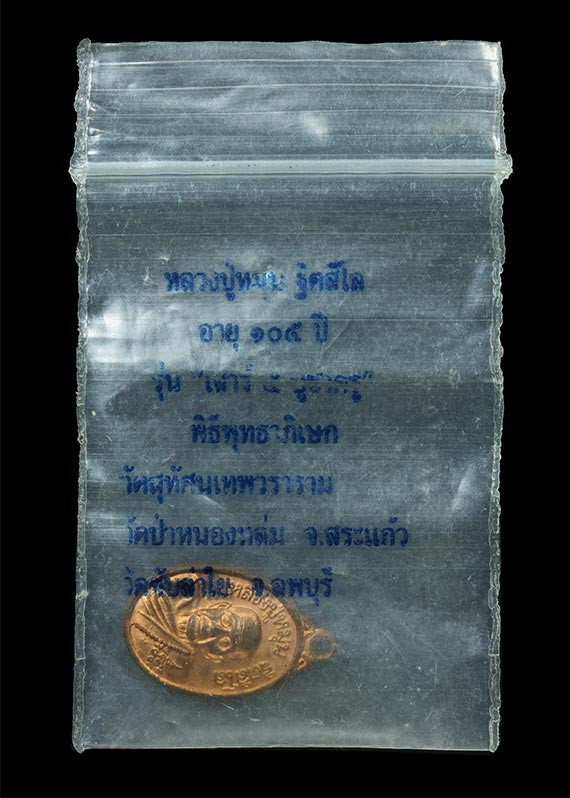 หลวงปู่หมุน ฐิตสีโล
อายุ ๑๐๕ ปี
รุ่น "เสาร์ ๕ บูชาครู"
พิธีพุทธาภิเษก
วัดสุทัศนเทพวราราม
วัดป่าหนองหล่ม จ.สระแก้ว
วัดซับลำใย จ.ลพบุรี
หลวงปู่หมุน ฐิตสีโล